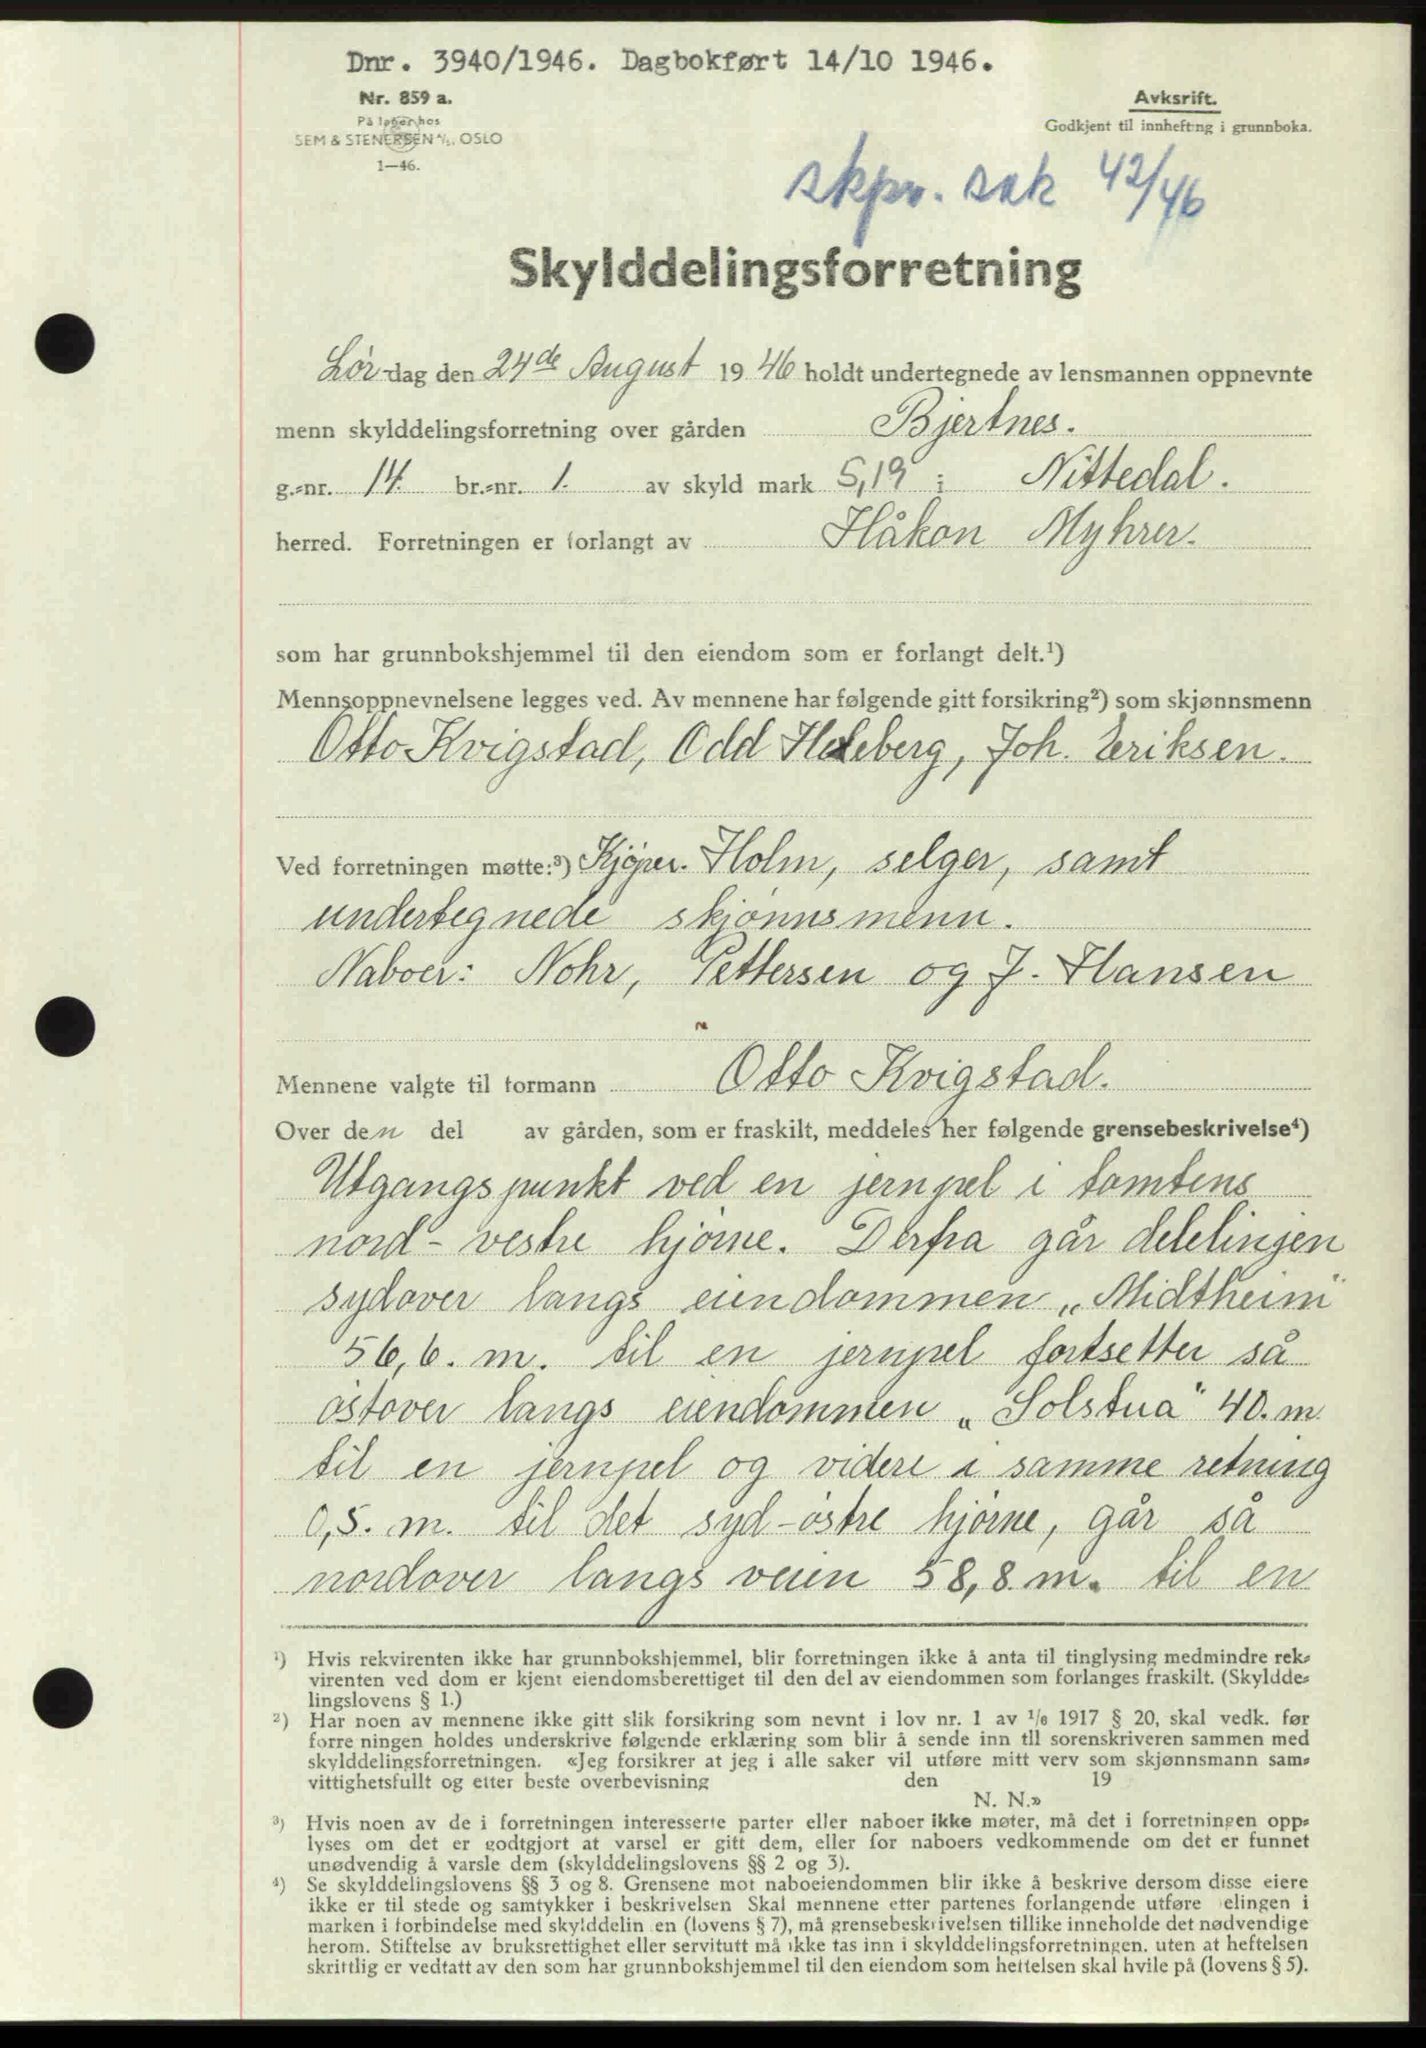 Dnr. 3940/1946. Dagbokført 14/10 1946.
Nr. 859 a.
På lager hos
SEM & STENERSEN A/S, OSLO
1—46.
Avksrift.
Godkjent til innhefting i grunnboka.
skpr. sak 42/46
Skylddelingsforretning
Lør-dag den 24de August 1946 holdt undertegnede av lensmannen oppnevnte
menn skylddelingsforretning over gården Bjertnes.
g.-nr. 14. br.-nr. 1. av skyld mark 5,19 i Nittedal.
herred. Forretningen er forlangt av Håkon Myhrer.
som har grunnbokshjemmel til den eiendom som er forlangt delt.¹)
Mennsoppnevnelsene legges ved. Av mennene har følgende gitt forsikring²) som skjønnsmenn
Otto Kvigstad, Odd Holeberg, Joh. Eriksen.
Ved forretningen møtte:³) Kjøper. Holm, selger, samt
undertegnede skjønnsmenn.
Naboer: Nohr, Pettersen og J. Hansen
Mennene valgte til formann Otto Kvigstad.
Over den del av gården, som er fraskilt, meddeles her følgende grensebeskrivelse⁴)
Utgangspunkt ved en jernpel i tomtens
nord-vestre hjørne. Derfra går delelinjen
sydover langs eiendommen „Midtheim"
56,6. m. til en jernpel fortsetter så
østover langs eiendommen „Solstua" 40. m.
til en jernpel og videre i samme retning
0,5. m. til det syd-østre hjørne, går så
nordover langs veien 58,8. m. til en
¹) Hvis rekvirenten ikke har grunnbokshjemmel, blir forretningen ikke å anta til tinglysing medmindre rek-
virenten ved dom er kjent eiendomsberettiget til den del av eiendommen som forlanges fraskilt. (Skyldde-
lingslovens § 1.)
²) Har noen av mennene ikke gitt slik forsikring som nevnt i lov nr. 1 av 1/6 1917 § 20, skal vedk. før
forre ningen holdes underskrive følgende erklæring som blir å sende inn til sorenskriveren sammen med
skylddelingsforretningen. «Jeg forsikrer at jeg i alle saker vil utføre mitt verv som skjønnsmann sam-
vittighetsfullt og etter beste overbevisning den 19
N. N.»
³) Hvis noen av de i forretningen interesserte parter eller naboer ikke møter, må det i forretningen opp-
lyses om det er godtgjort at varsel er gitt dem, eller for naboers vedkommende om det er funnet
unødvendig å varsle dem (skylddelingslovens §§ 2 og 3).
⁴) Se skylddelingslovens §§ 3 og 8. Grensene mot naboeiendommen blir ikke å beskrive dersom disse eiere
ikke er til stede og samtykker i beskrivelsen Skal mennene etter partenes forlangende utføre elingen i
marken i forbindelse med skylddelin en (lovens § 7), må grensebeskrivelsen tillike inneholde det nødvendige
herom. Stiftelse av bruksrettighet eller servitutt må ikke tas inn i skylddelingsforretningen. uten at heftelsen
skriftlig er vedtatt av den som har grunnbokshjemmel til den eiendom som heftelsen skal hvile på (lovens § 5).